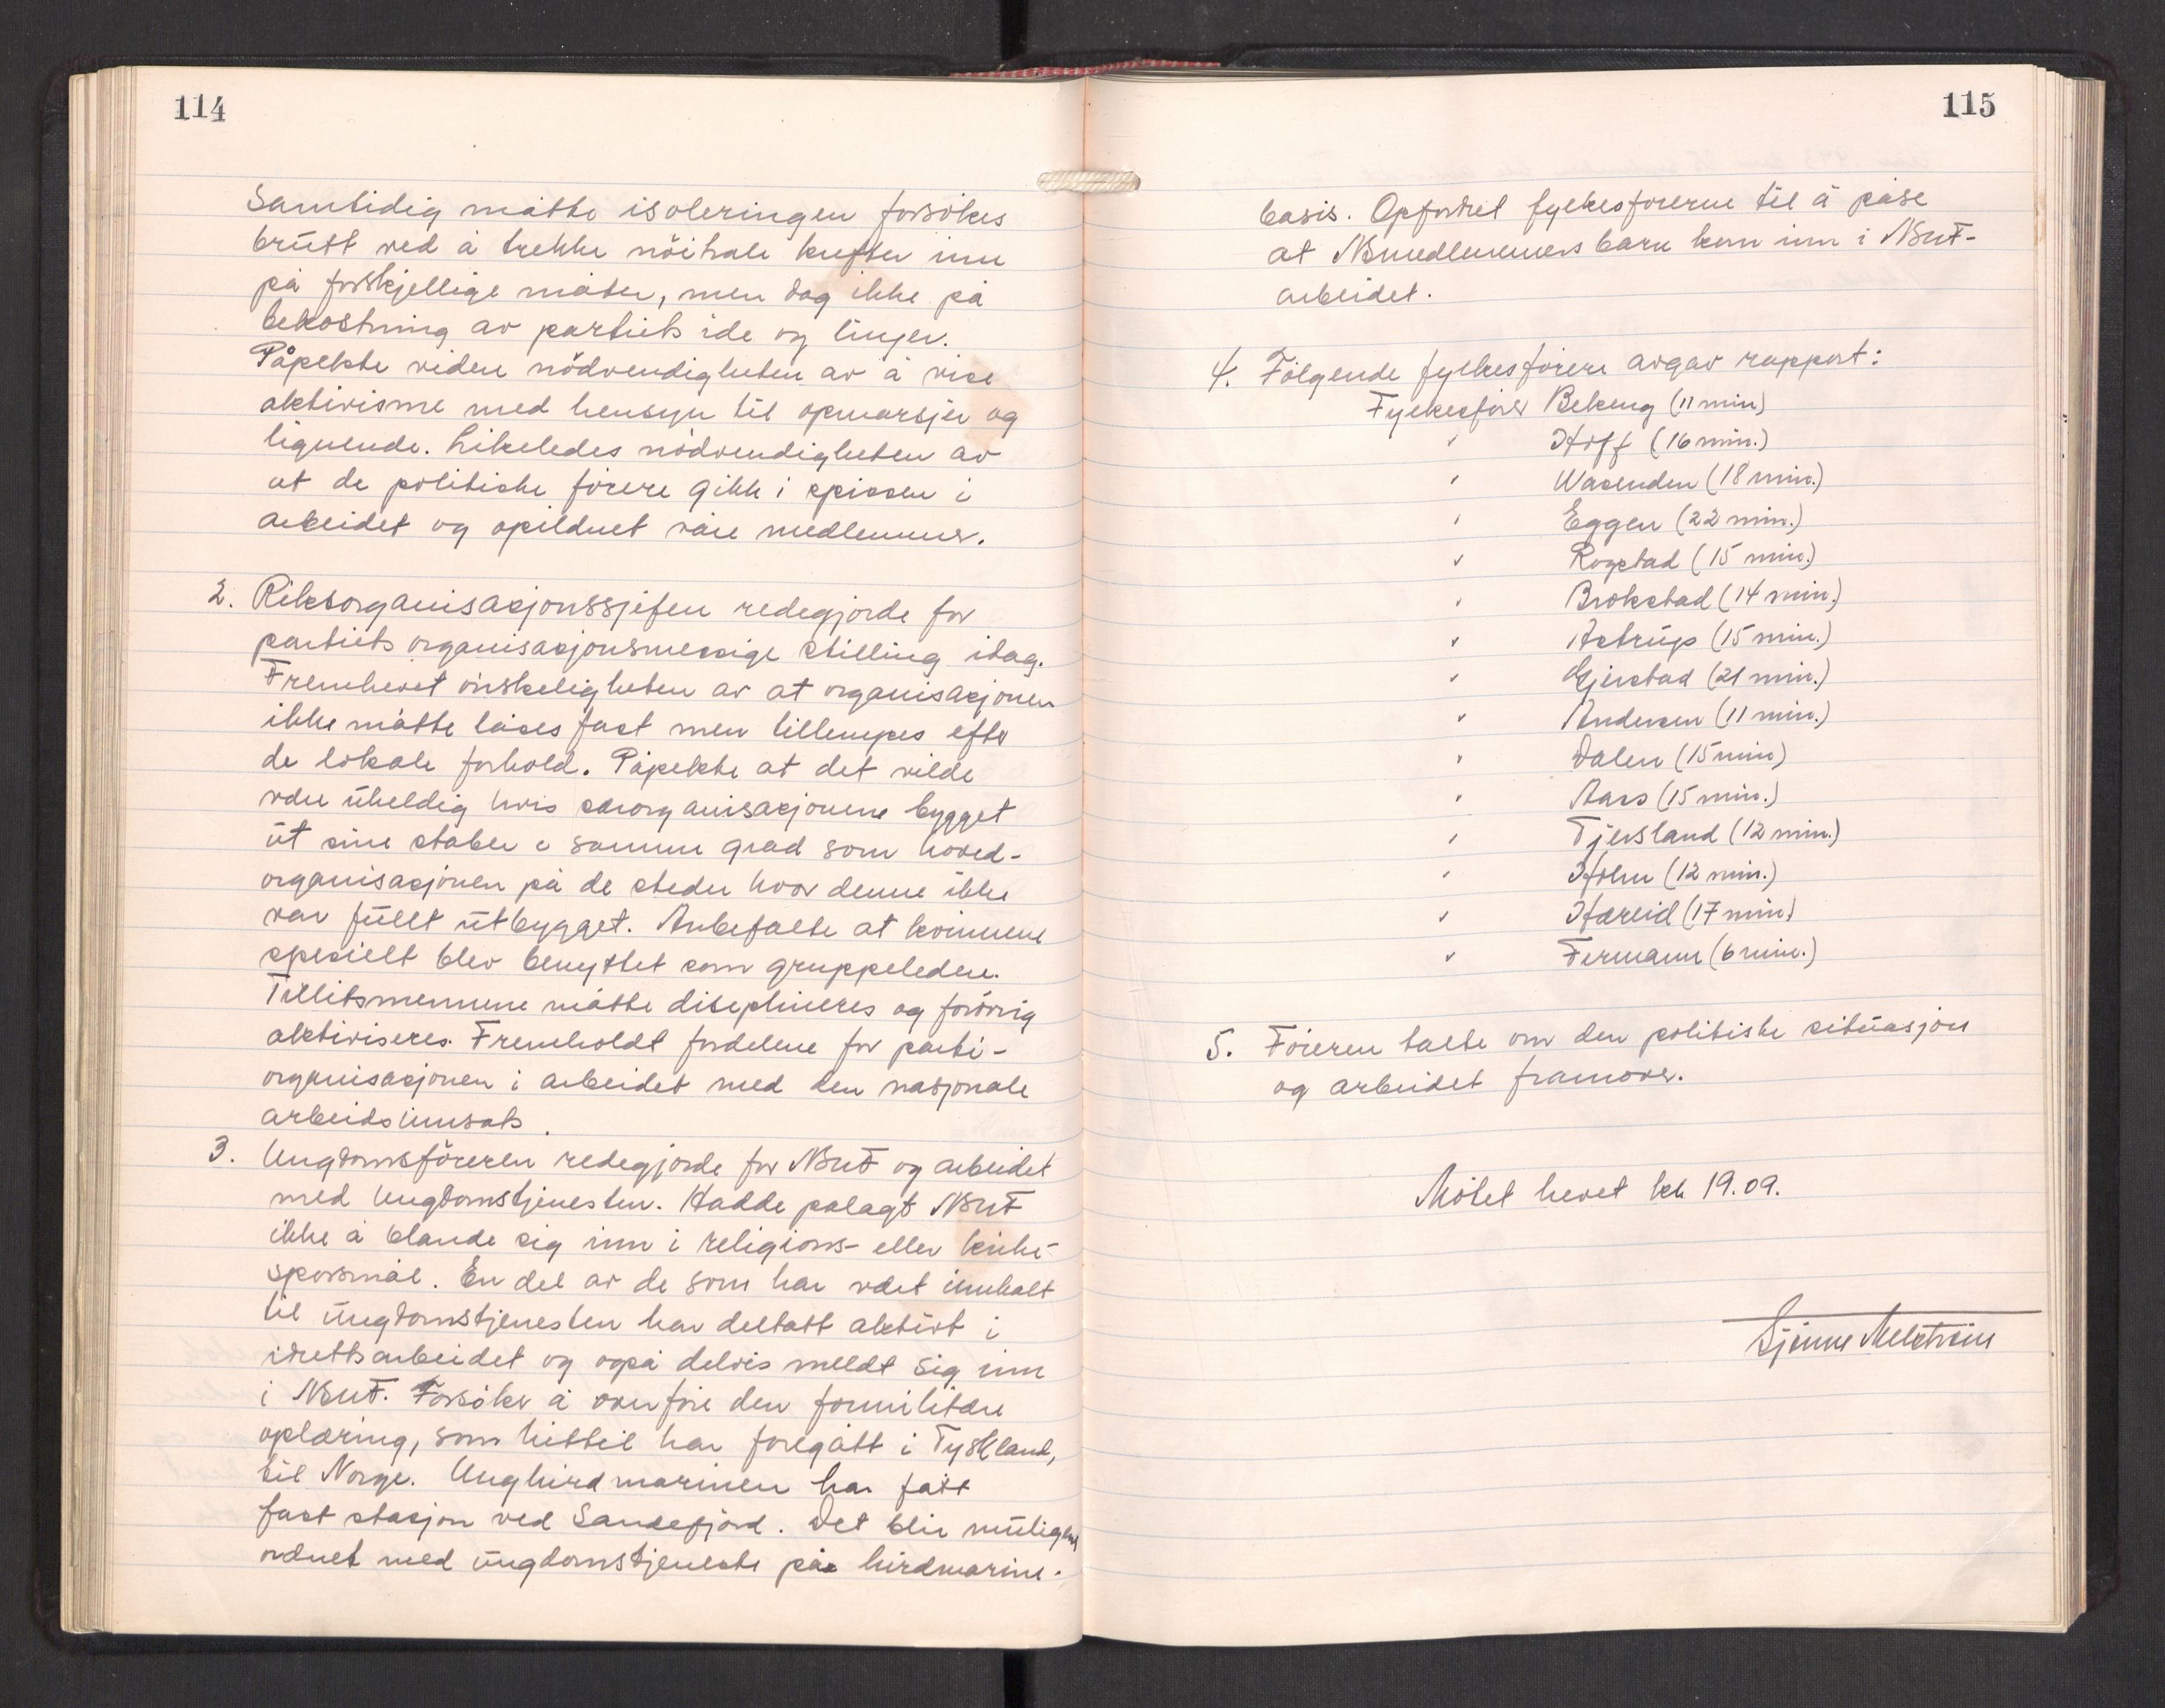 114
Samtidig måtte isoleringen forsökes
brutt ved å trekke nöitrale krefter inn
på forskjellige måter, men dog ikke på
bekostning av partiets ide og linjer.
Påpekte videre nödvendigheten av å vise
aktivisme med hensyn til opmarsjer og
lignende. Likeledes nödvendigheten av
at de politiske förere gikk i spissen i
arbeidet og opildnet våre medlemmer.
2. Riksorganisasjonssjefen redegjorde for
partiets organisasjonsmessige stilling idag.
Fremhevet önskeligheten av at organisasjonen
ikke måtte låses fast men tillempes efter
de lokale forhold. Påpekte at det vilde
være uheldig hvis særorganisasjonene bygget
ut sine staber i samme grad som hoved-
organisasjonen på de steder hvor denne ikke
var fullt utbygget. Anbefalte at kvinnene
spesielt blev benyttet som gruppeledere.
Tillitsmennene måtte disiplineres og forövrig
aktiviseres. Fremholdt fordelene for parti-
organisasjonen i arbeidet med den nasjonale
arbeidsinnsats.
3. Ungdomsföreren redegjorde for NSUF og arbeidet
med Ungdomstjenesten. Hadde palagt NSUF
ikke å blande sig inn i religions- eller kirke-
sporsmål. En del av de som har vært innkalt
til Ungdomstjenesten har deltatt aktivt i
idrettsarbeidet og også delvis meldt sig inn
i NSUF. Forsöker å overföre den formilitære
oplæring, som hittil har foregått i Tyskland,
til Norge. Unghirdmarinen har fått
fast stasjon ved Sandefjord. Det blir muligens
ordnet med ungdomstjeneste på hirdmarine-
115
basis. Opfordret fylkesförerne til å påse
at NSmedlemmers barn kom inn i NSUF-
arbeidet.
4. Fölgende fylkesförere avgav rapport:
Fylkesförer Bekeng (11 min)
" Hoff (16 min.)
" Wasenden (18 min.)
" Eggen (22 min.)
" Rogstad (15 min.)
" Brokstad (14 min.)
" Astrup (15 min.)
" Gjerstad (21 min.)
" Andersen (11 min.)
" Dalen (15 min)
" Aars (15 min.)
" Tjersland (12 min.)
" Holm (12 min.)
" Hæreid (17 min)
" Fermann (6 min.)
5. Föreren talte om den politiske situasjon
og arbeidet framover.
Mötet hevet kl. 19.09.